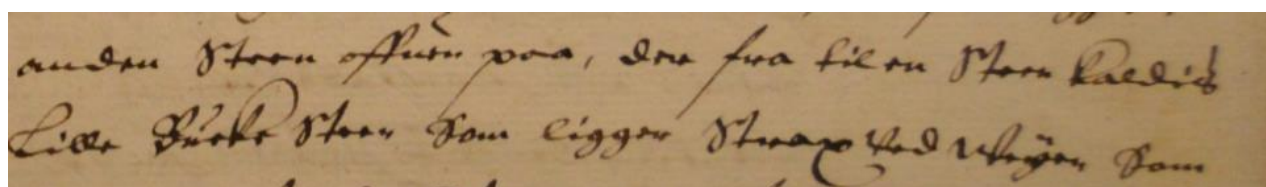 anden Steen offuen paa, der fra til en Steen kaldis
Lille Burke Steen Som ligger Strax Ved Weyen Som